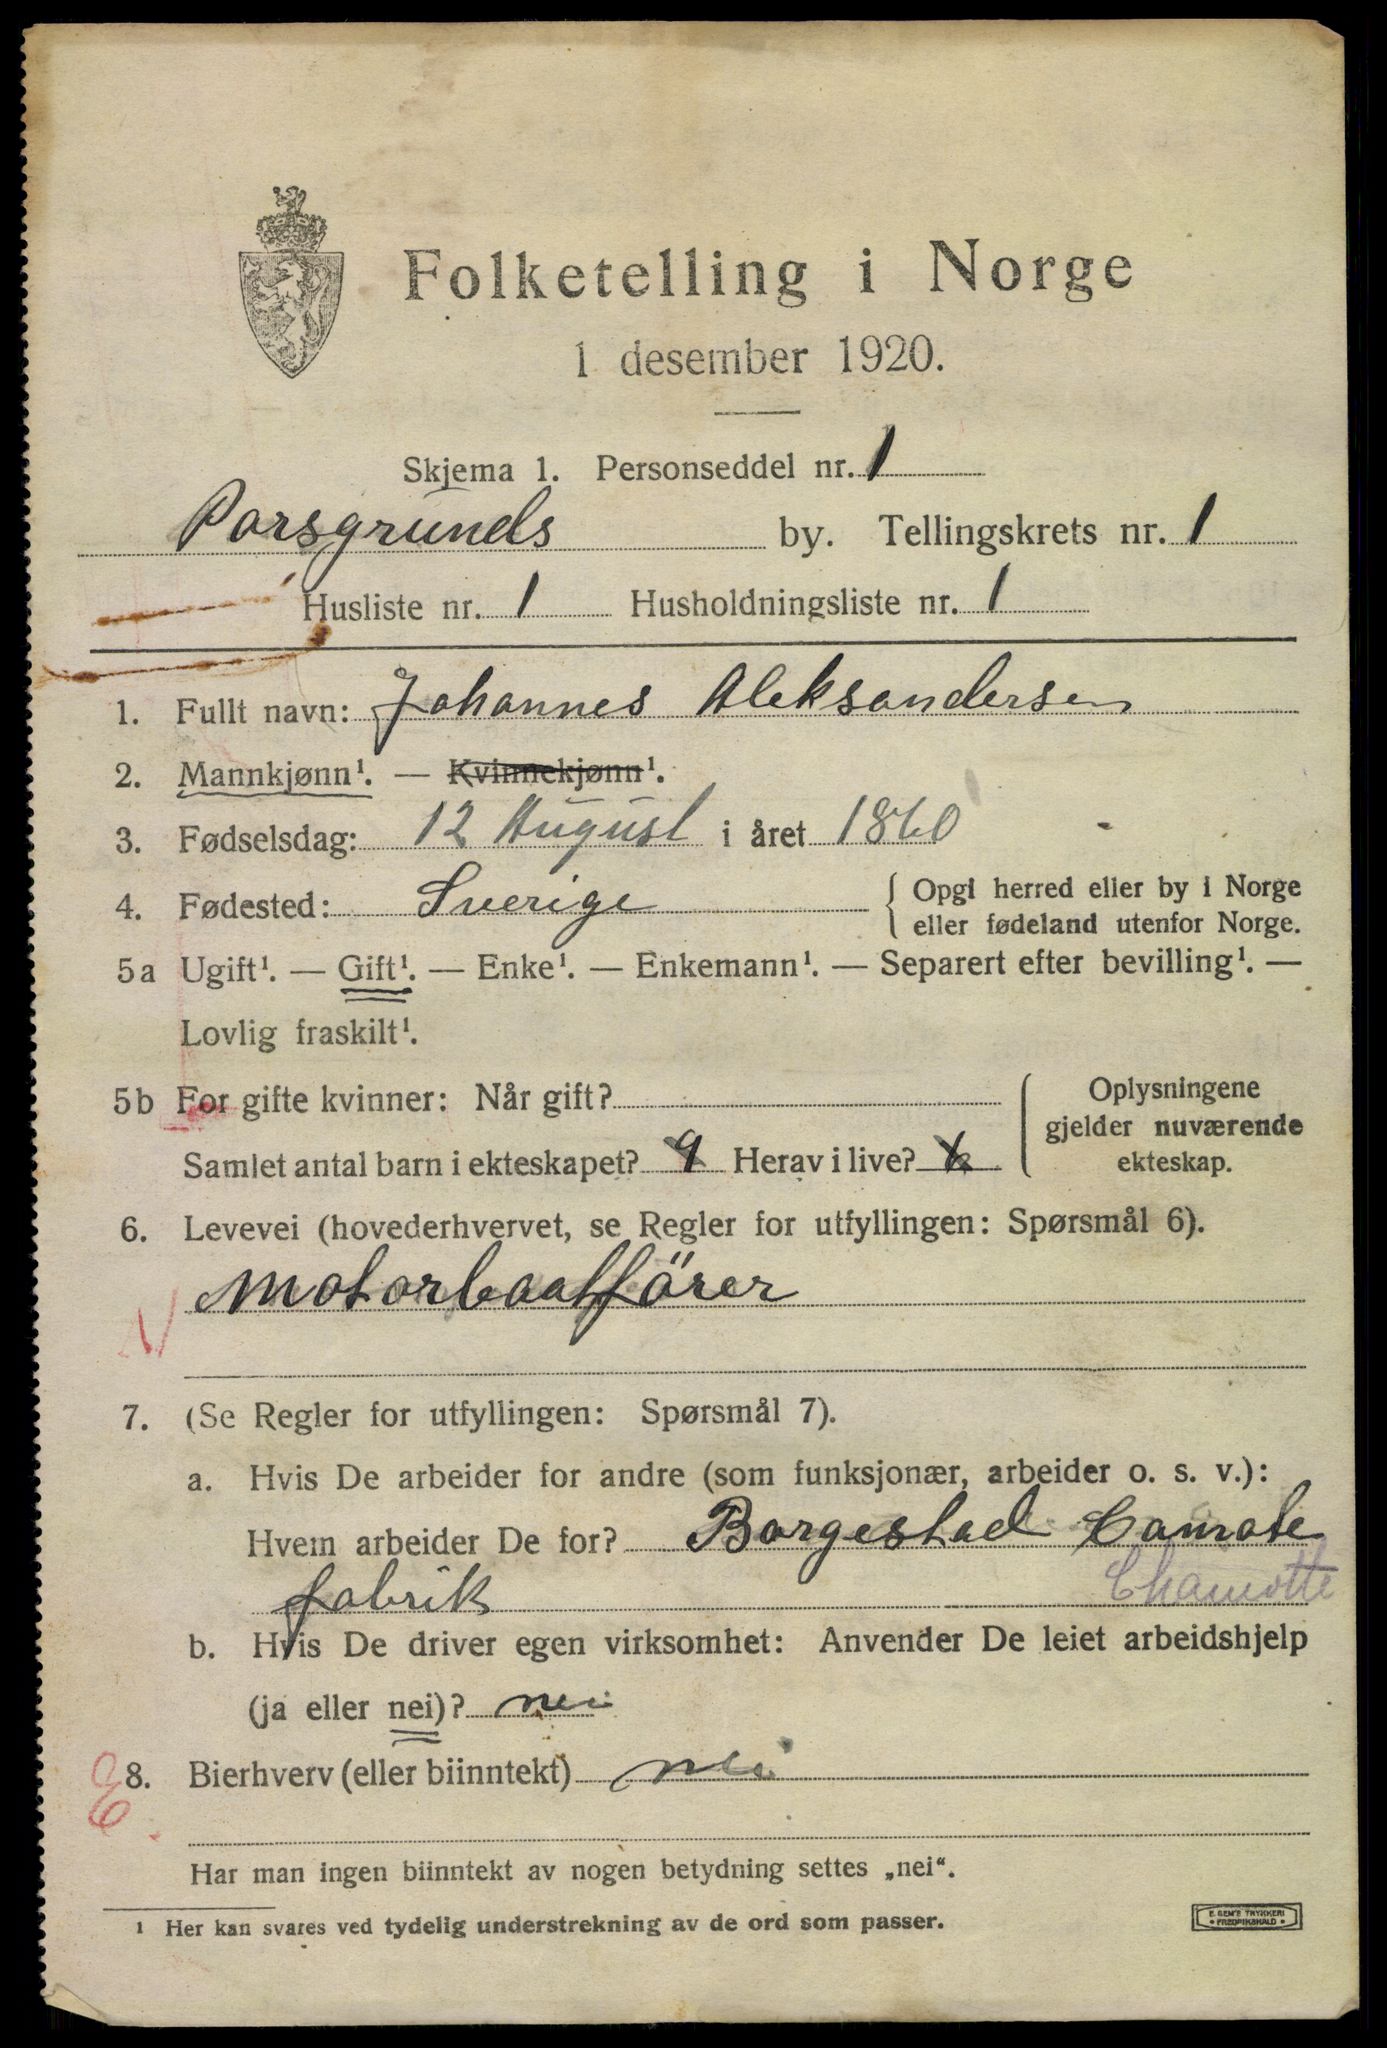 Folketelling i Norge
1 desember 1920.
Skjema 1. Personseddel nr. 1
Porsgrunds by. Tellingskrets nr. 1
Husliste nr. 1 Husholdningsliste nr. 1
1. Fullt navn: Johannes Aleksandersen
2. Mannkjønn¹. — Kvinnekjønn¹.
3. Fødselsdag: 12 August i året 1860
4. Fødested: Sverige { Opgi herred eller by i Norge
eller fødeland utenfor Norge.
5a Ugift¹. — Gift¹. — Enke¹. — Enkemann¹. — Separert efter bevilling¹. —
Lovlig fraskilt¹.
5b For gifte kvinner: Når gift?
Samlet antal barn i ekteskapet? 9 Herav i live?
{ Oplysningene
gjelder nuværende
ekteskap.
6. Levevei (hovederhvervet, se Regler for utfyllingen: Spørsmål 6).
Motorbaatförer
7. (Se Regler for utfyllingen: Spørsmål 7).
a. Hvis De arbeider for andre (som funksjonær, arbeider o. s. v.):
Hvem arbeider De for? Borgestad Camote
fabrik Chamotte
b. Hvis De driver egen virksomhet: Anvender De leiet arbeidshjelp
(ja eller nei)? nei
8. Bierhverv (eller biinntekt) nei
Har man ingen biinntekt av nogen betydning settes „nei“.
¹ Her kan svares ved tydelig understrekning av de ord som passer.
E. SEM'S TRYKKERI
• FREDRIKSHALD •